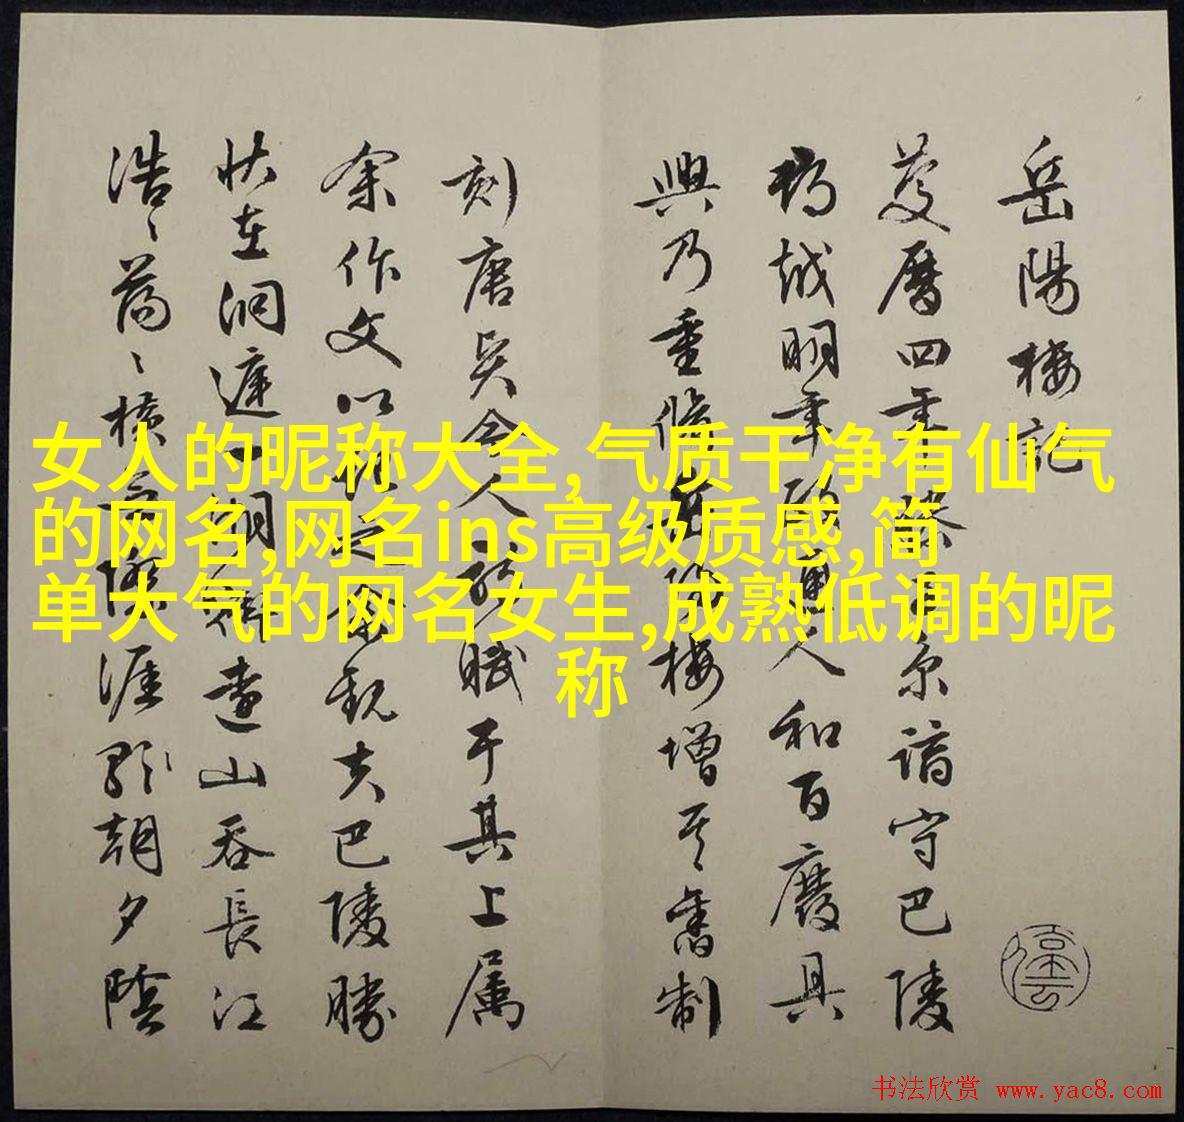 岳陽樓記
慶曆四年滕子京謫守巴陵
郡越明年政通人和百廢具
興乃重修岳陽樓增其舊制
刻唐賢今人詩賦于其上屬
余作文以記之余觀夫巴陵勝
狀在洞庭一湖銜遠山吞長江
浩〻蕩〻橫無際涯朝夕陰
女人的昵称大全,气质干净有仙气
的网名,网名ins高级质感,简
单大气的网名女生,成熟低调的昵
称
书法欣赏 www.yac8.com